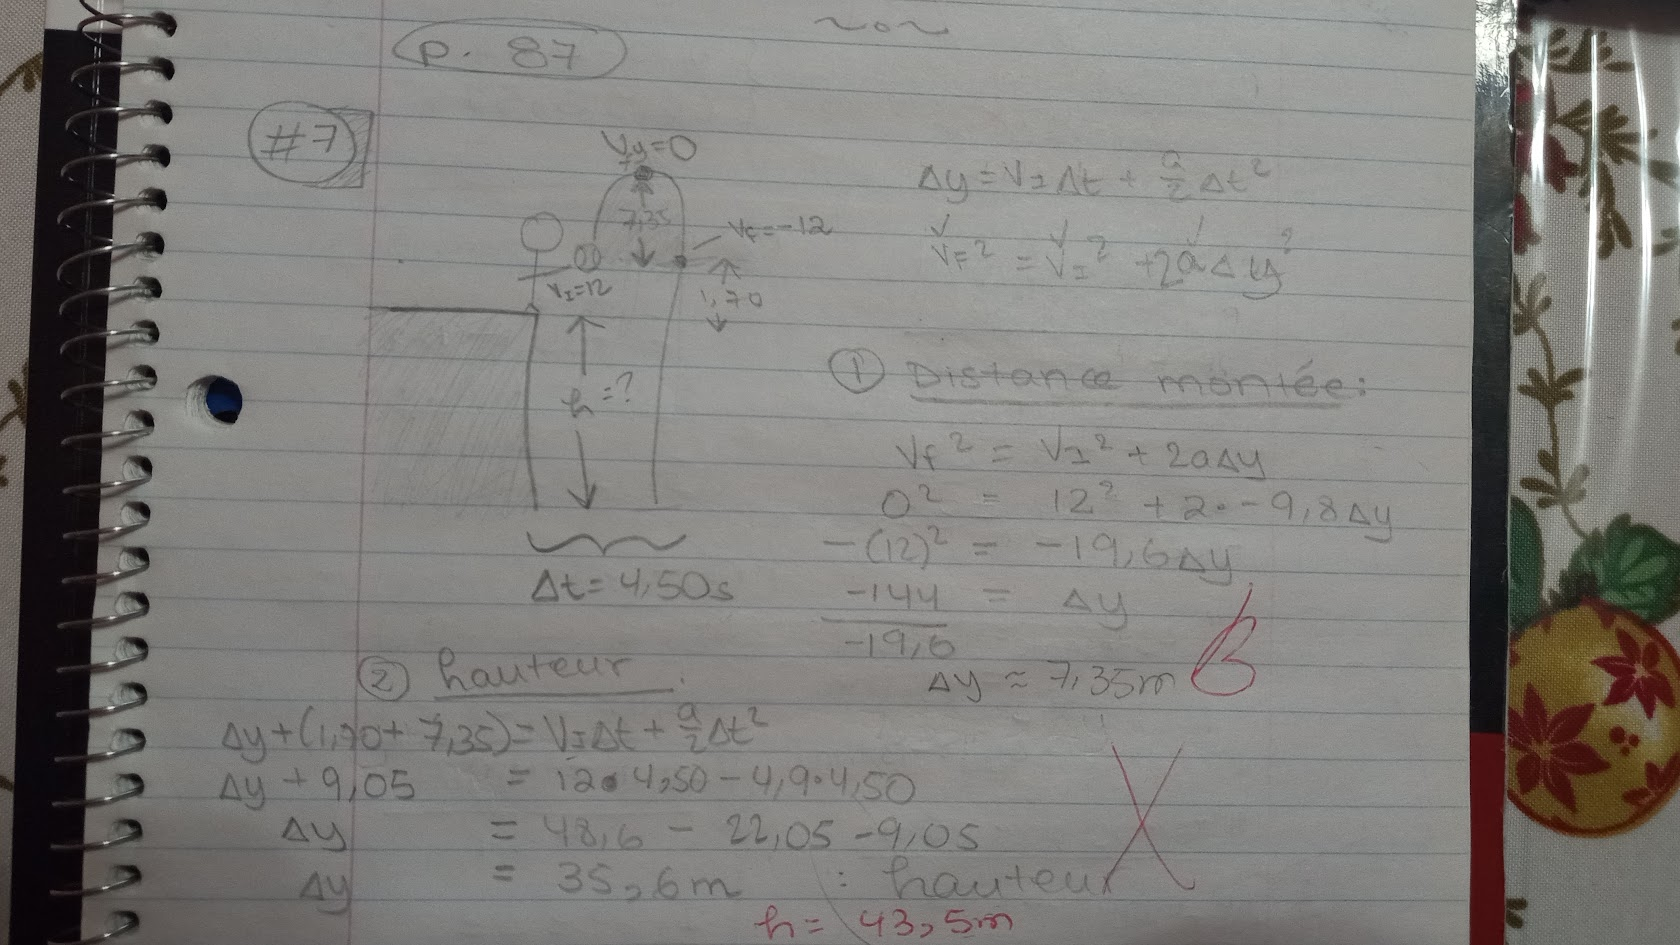 p. 87
#7
Vy=0
7,35
Vf=-12
VI=12
1,70
h=?
Δt=4,50s
Δy=VIΔt + a/2 Δt²
VF² = VI² +2aΔy?
① Distance montée:
Vf² = VI² + 2aΔy
0² = 12² + 2•-9,8Δy
-(12)² = -19,6Δy
-144/-19,6 = Δy
Δy ≈ 7,35m B
② hauteur :
Δy+(1,70+7,35)=VIΔt + a/2 Δt²
Δy + 9,05 = 12•4,50 - 4,9•4,50
Δy = 48,6 - 22,05 - 9,05
Δy = 35,6m : hauteur
h= 43,5m